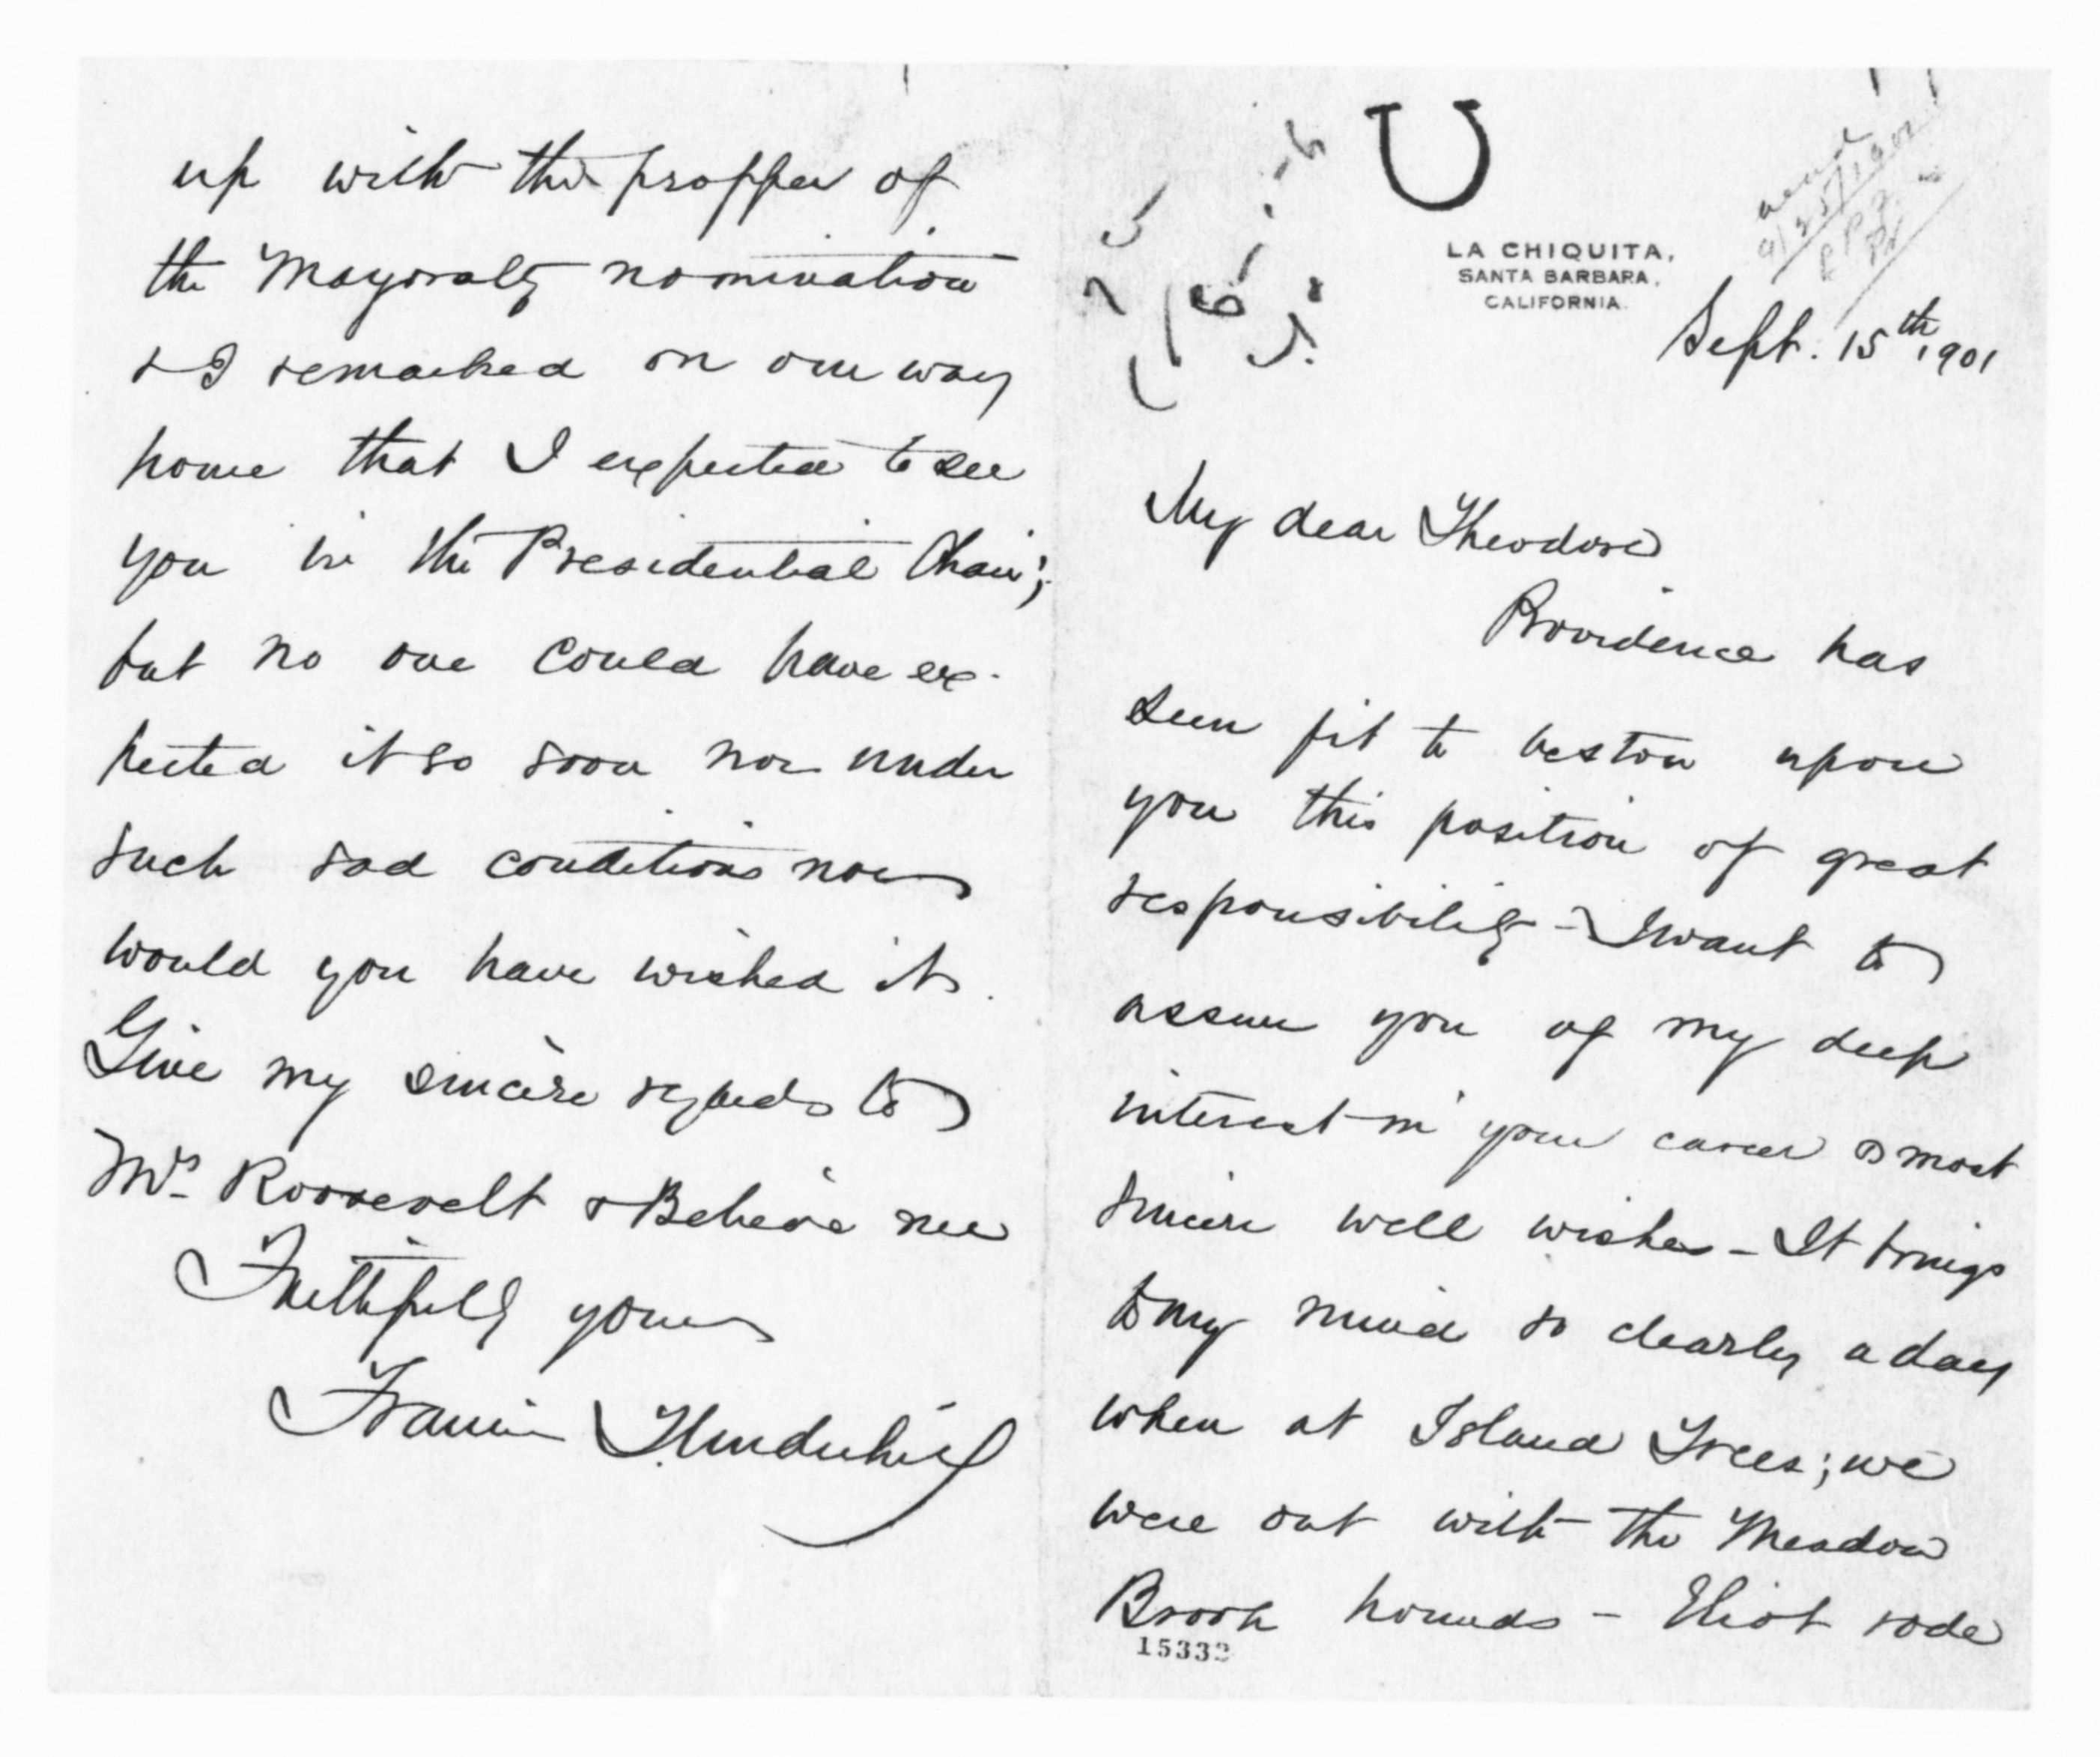 LA CHIQUITA,
SANTA BARBARA,
CALIFORNIA.
Sept. 15th 1901
My dear Theodore
Providence has
seen fit to bestow upon
you this position of great
responsibility - I want to
assure you of my deep
interest in your career & most
sincere well wishes - It brings
to my mind so clearly a day
when at Island Trees; we
were out with the Meadow
Brook hounds - Eliot rode
15332
up with the proffer of
the Mayoralty nomination
& I remarked on our way
home that I expected to see
you in the Presidential Chair;
but no one could have ex-
pected it so soon nor under
such sad conditions nor
would you have wished it.
Give my sincere regards to
Mrs Roosevelt & Believe me
Faithfully yours
Francis T. Underhill